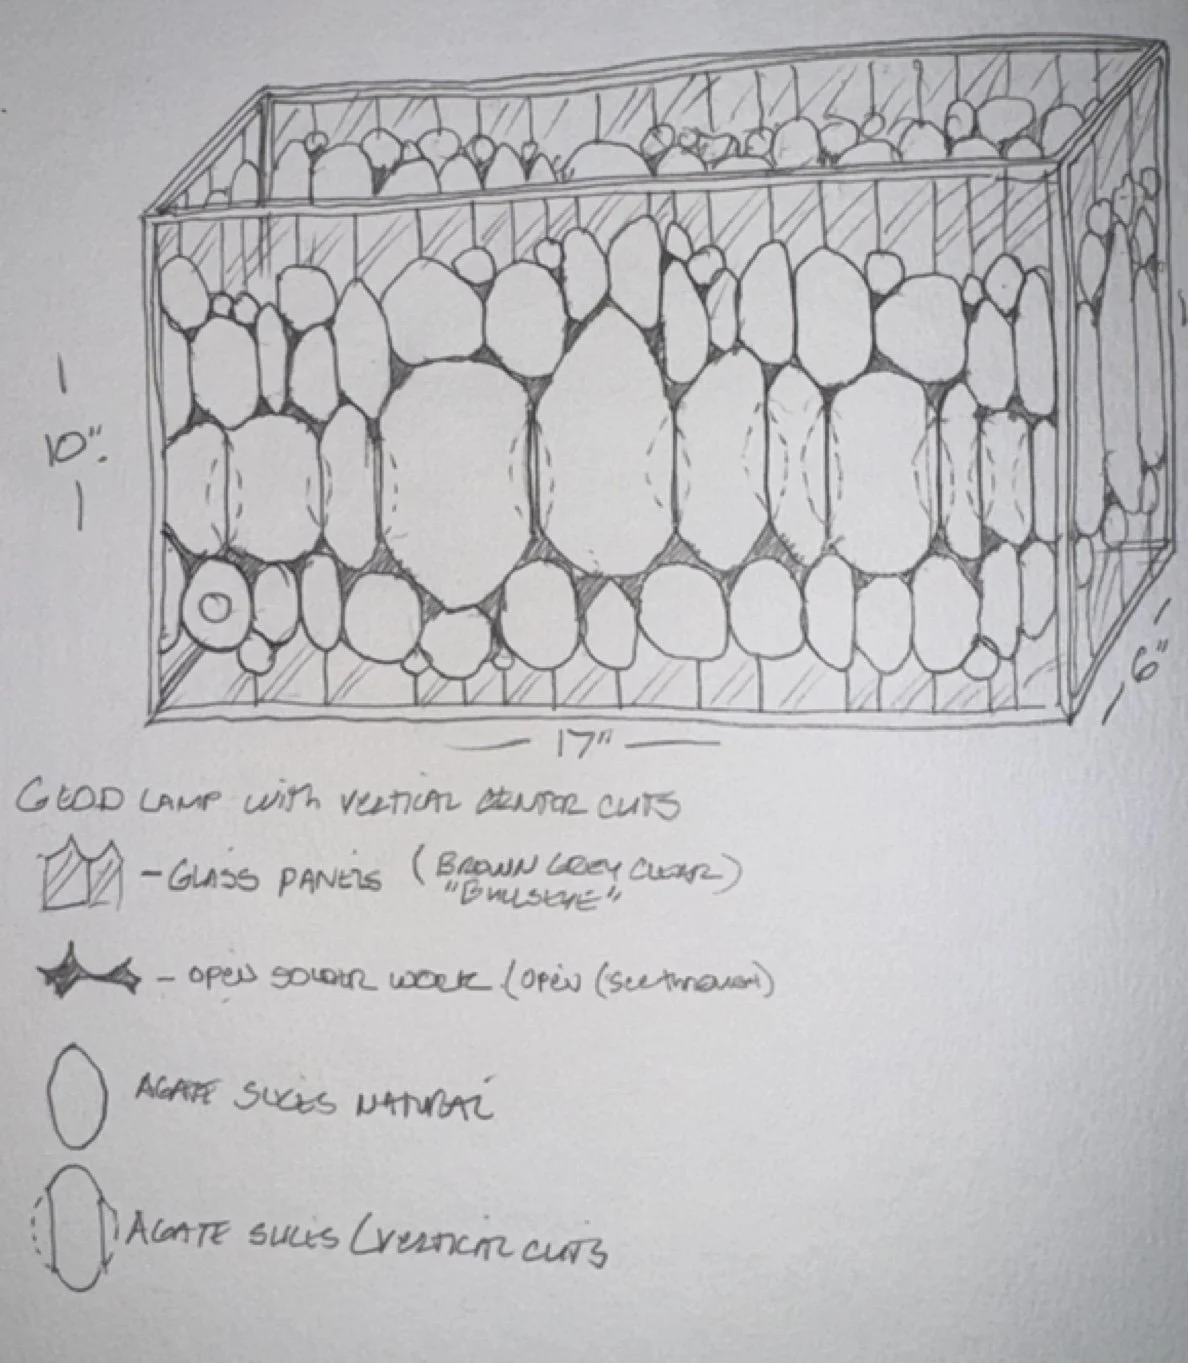 10".
6"
17"
GEOD LAMP WITH VERTICAL CENTOR CUTS
- GLASS PANELS (BROWN GREY CLEAR)
"BULLSEYE"
- OPEN SOLDER WORK (OPEN (SEETHROUGH)
AGATE SLICES NATURAL
AGATE SLICES (VERTICAL CUTS